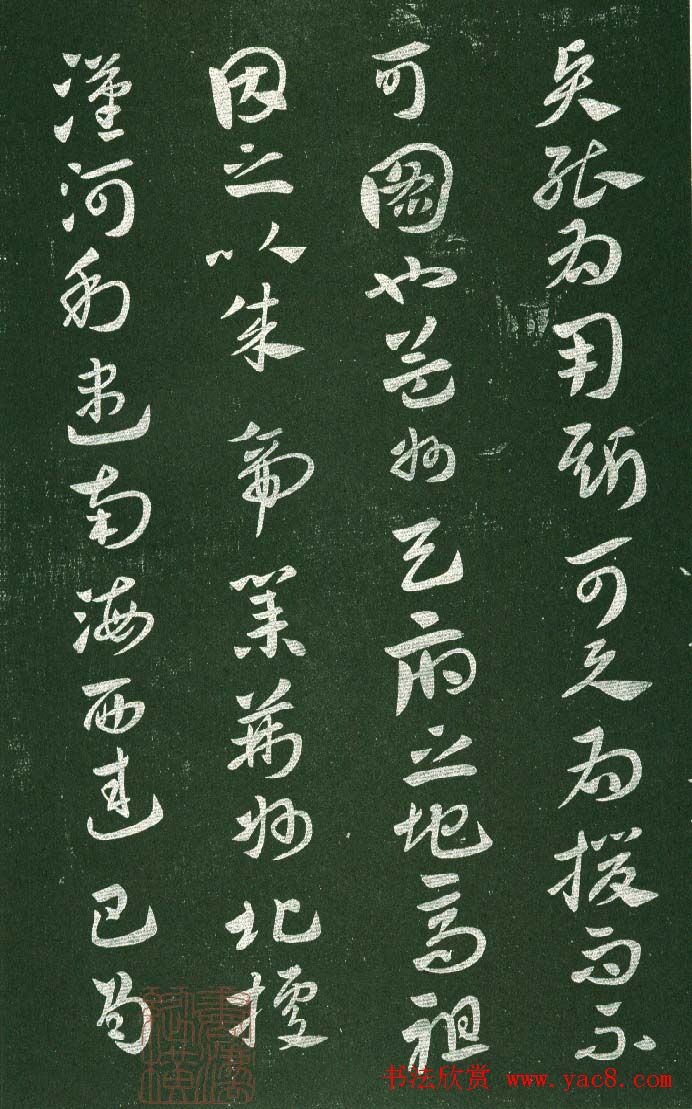 賢能為用斯可以為援而不
可圖也益州天府之地高祖
因之以成帝業荊州北據
漢河利盡南海西達巴蜀
书法欣赏 www.yac8.com